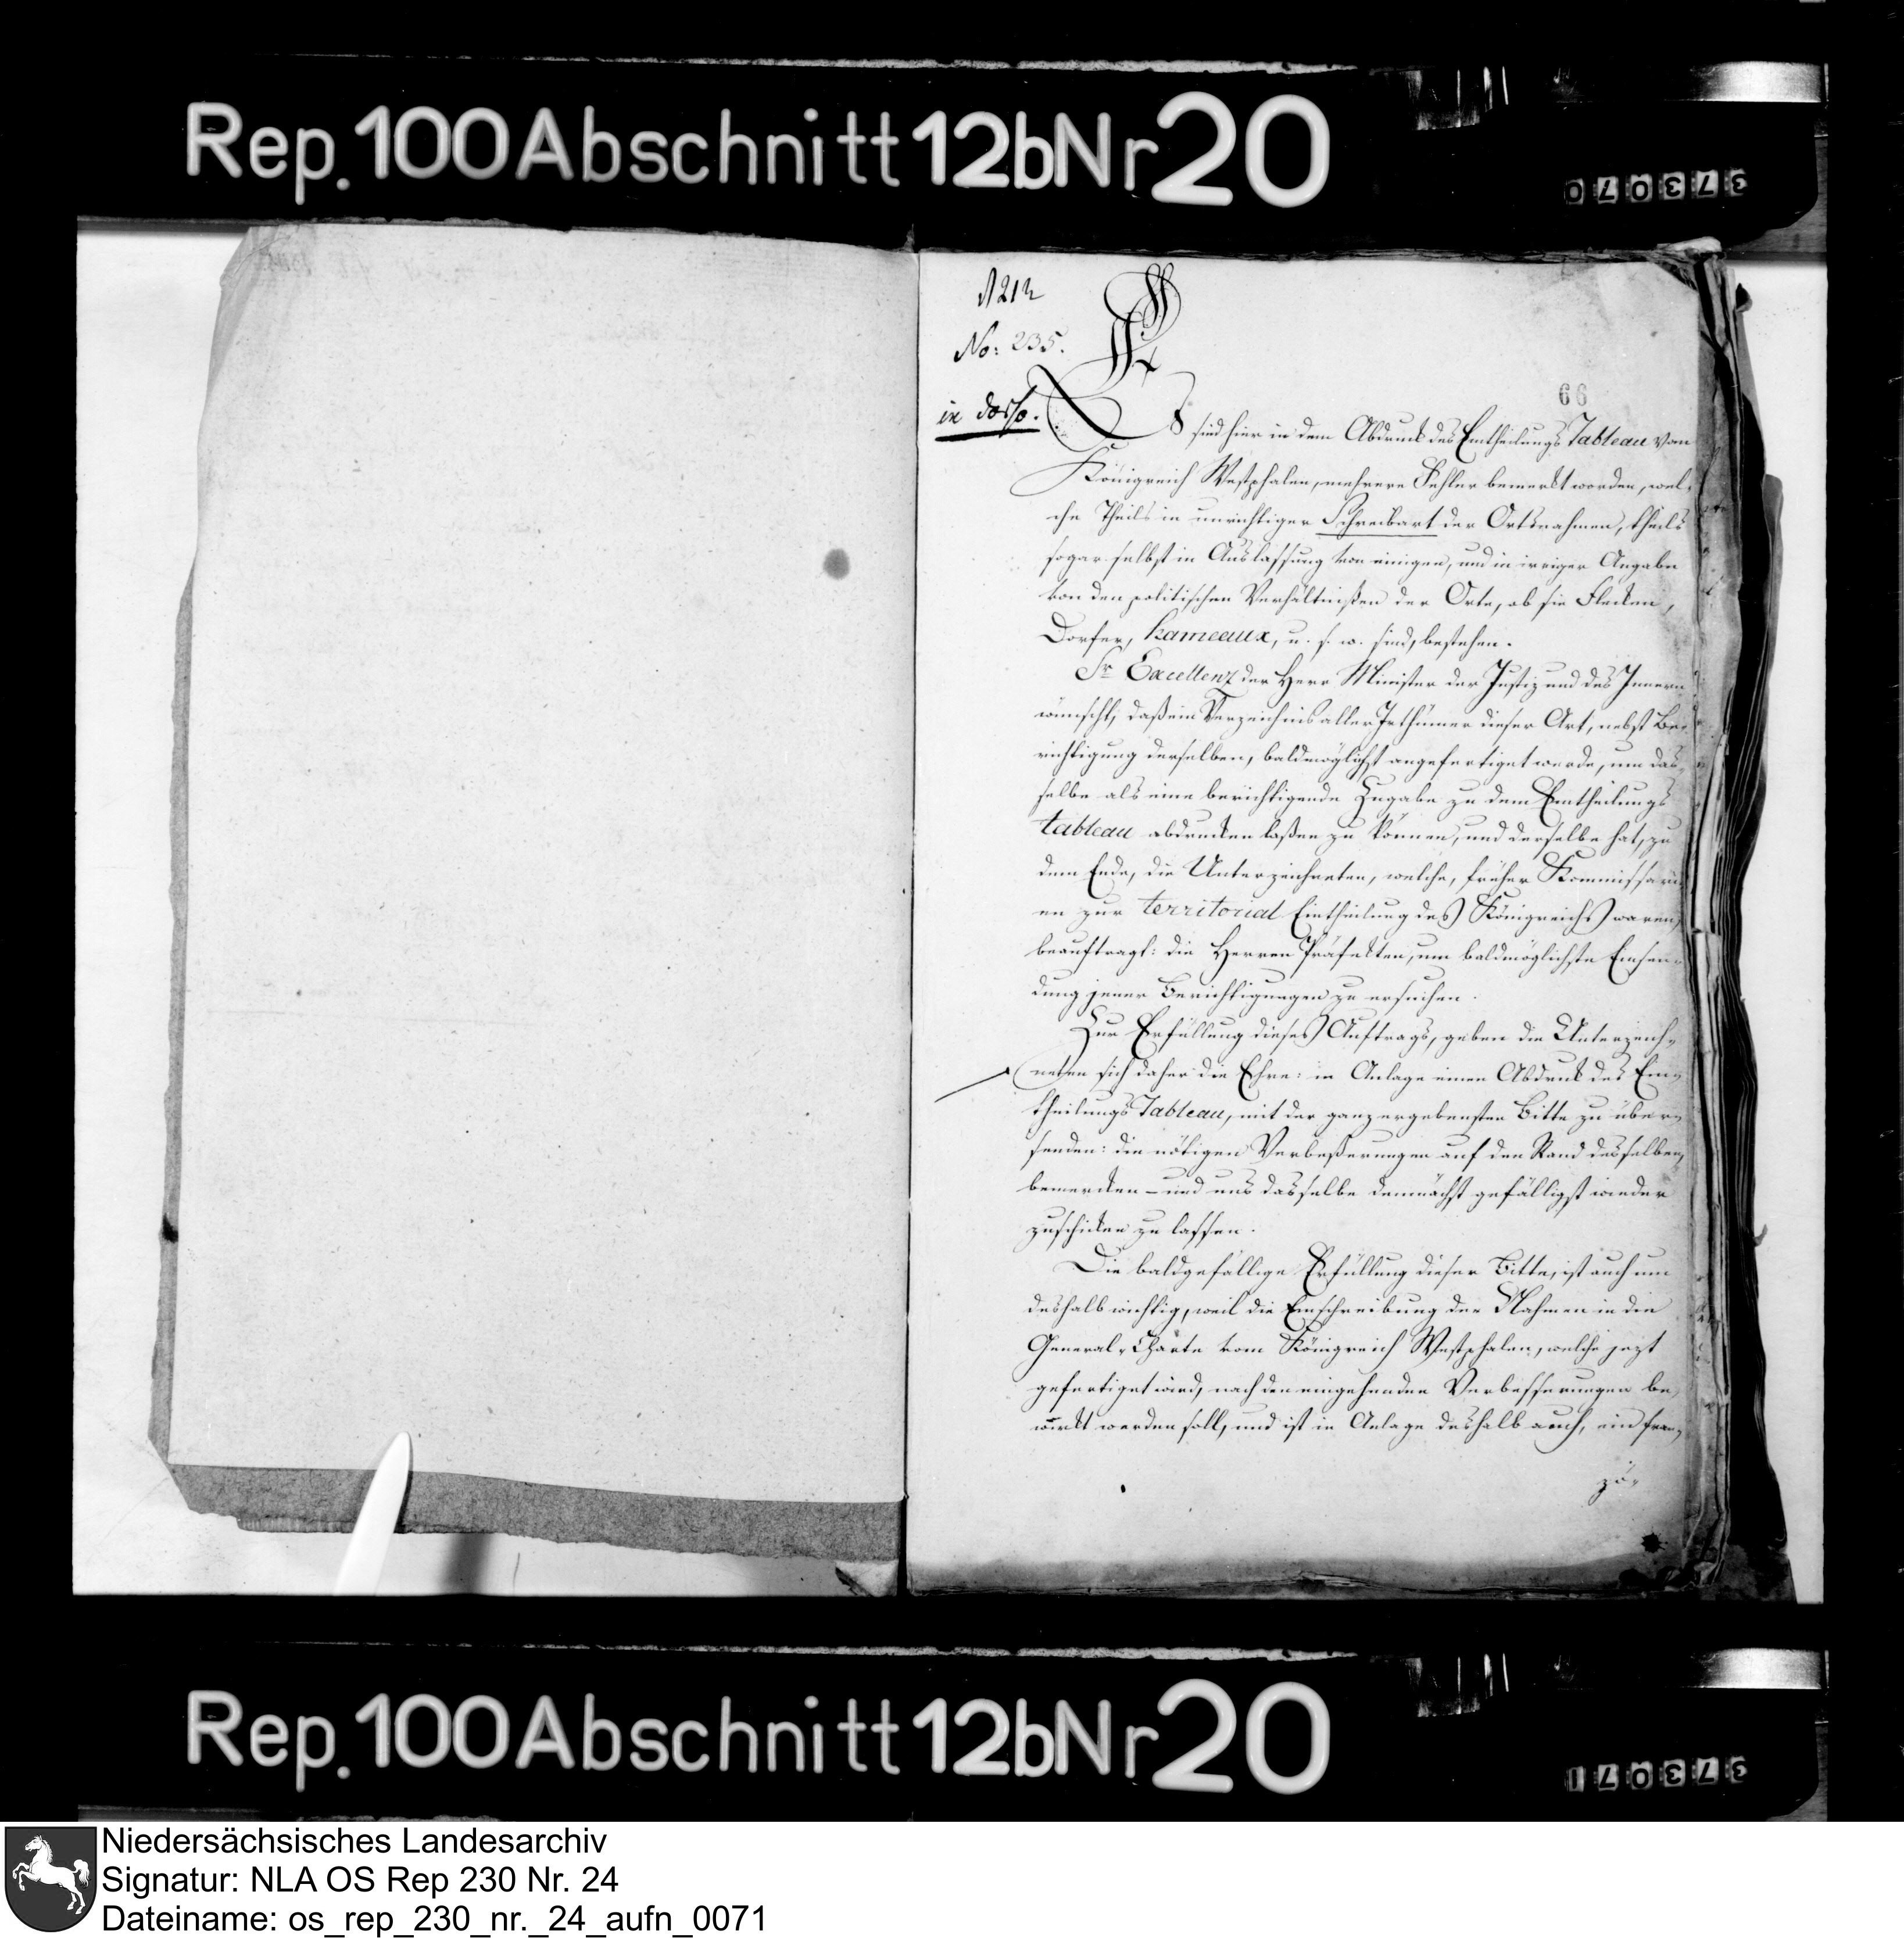 Rep. 100 Abschnitt 12b Nr 20
373070
No: 235.
66
in dorso.
Es sind hier in dem Abdruck des Eintheilungs Tableau vom
Königreich Westphalen, mehrere Fehler bemerkt worden, wel-
che Theils in unrichtiger Schreibart der Ortsnahmen, theils
sogar selbst in Auslassung von einigen, und in irriger Angabe
von den politischen Verhältnißen der Orte, ob sie Flecken,
Dorfer, hameaux, u. s. w. sind, bestehen.
Sr Excellenz der Herr Minister der Justiz und des Innern
wünscht, daß ein Verzeichnis aller Irthümer dieser Art, nebst Be-
richtigung derselben, baldmöglichst angefertiget werde, um das-
selbe als eine berichtigende Zugabe zu dem Eintheilungs
tableau abdrucken laßen zu können, und derselbe hat, zu
dem Ende, die Unterzeichneten, welche, früher Kommissari-
en zur territorial Eintheilung des Königreichs waren,
beauftragt: die Herren Präfekten, um baldmöglichste Einsen-
dung jener Berichtigungen zu ersuchen.
Zur Erfüllung dieses Auftrags, geben die Unterzeich-
neten sich daher die Ehre: in Anlage einen Abdruck des Ein-
theilungs Tableau, mit der ganz ergebensten Bitte zu über-
senden: die nötigen Verbeßerungen auf den Rand desselben
bemercken – und uns dasselbe demnächst gefälligst wieder
zuschicken zu lassen.
Die baldgefällige Erfüllung dieser Bitte, ist auch um
deshalb wichtig, weil die Einschreibung der Nahmen in die
General-Charte vom Königreich Westphalen, welche jezt
gefertiget wird, nach den eingehenden Verbesserungen be-
wirkt werden soll, und ist in Anlage deshalb auch, ein fran-
zö-
Rep. 100 Abschnitt 12b Nr 20
373071
Niedersächsisches Landesarchiv
Signatur: NLA OS Rep 230 Nr. 24
Dateiname: os_rep_230_nr._24_aufn_0071